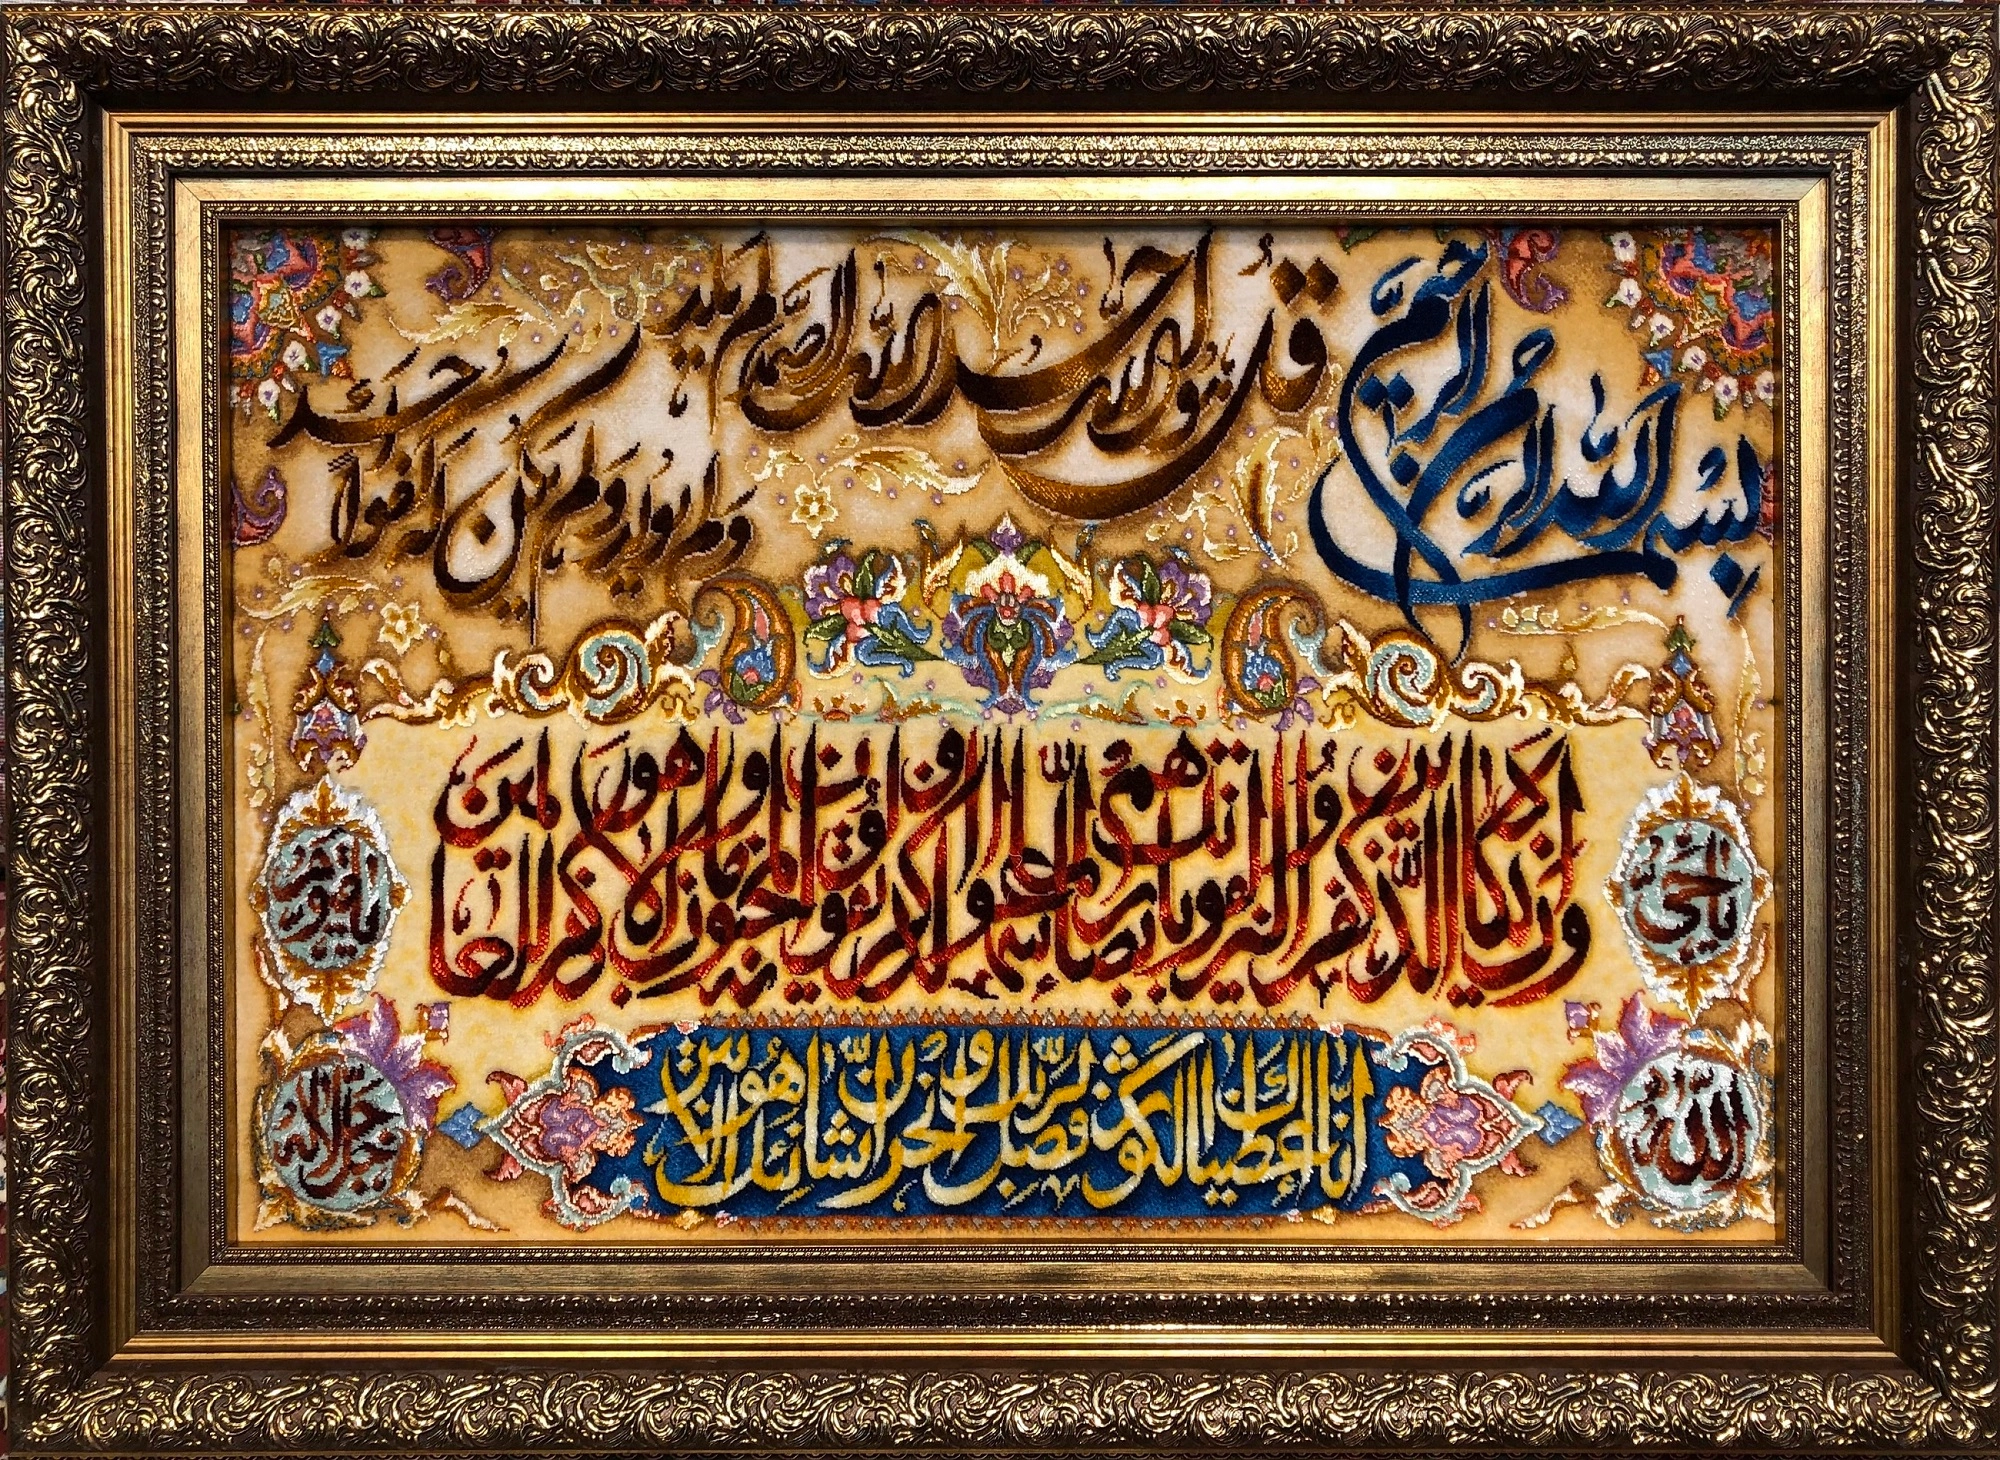 بسم الله الرحمن الرحيم
قل هو الله أحد الله الصمد لم يلد
ولم يولد ولم يكن له كفوا أحد
وإن يكاد الذين كفروا ليزلقونك بأبصارهم لما سمعوا الذكر ويقولون إنه لمجنون وما هو إلا ذكر للعالمين
إنا أعطيناك الكوثر فصل لربك وانحر إن شانئك هو الأبتر
الله
جل جلاله